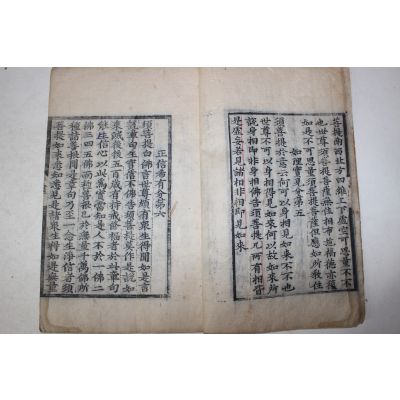 菩提南西北方四維上下虛空可思量不不
也世尊須菩提菩薩無住相布施福德亦復
如是不可思量須菩提菩薩但應如所教住
如理實見分第五
須菩提於意云何可以身相見如來不不也
世尊不可以身相得見如來何以故如來所
說身相即非身相佛告須菩提凡所有相皆
是虛妄若見諸相非相即見如來
正信希有分第六
須菩提白佛言世尊頗有衆生得聞如是言
說章句生實信不佛告須菩提莫作是說如
來滅後後五百歲有持戒修福者於此章句
能生信心以此爲實當知是人不於一佛二
佛三四五佛而種善根已於無量千萬佛所
種諸善根聞是章句乃至一念生淨信者須
菩提如來悉知悉見是諸衆生得如是無量